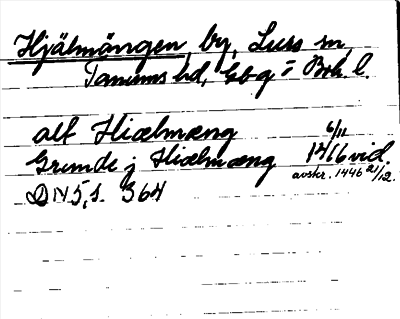 Hjälmängen, by, Lurs sn,
Tanums hd, Gbg = Boh. l.
alt Hiælmæng 6/11
Grimde j Hiælmæng 1416 vid.
avskr. 1446 21/12.
DN 5, s. 364